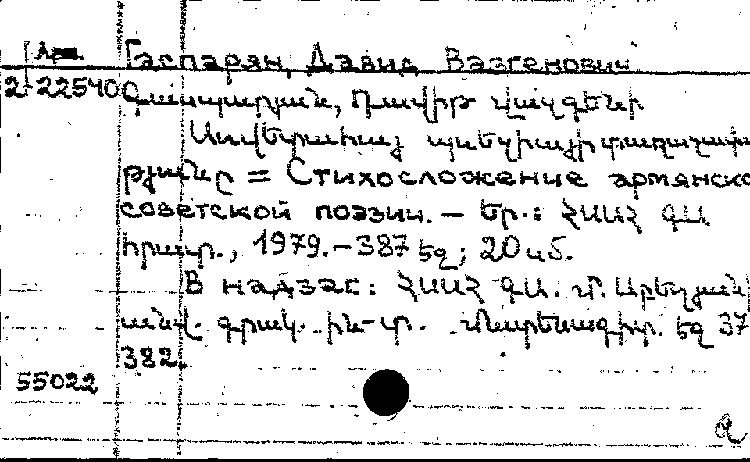 Арм. Гаспарян, Давид Вазгенович
2-22540 Գասպարյան, Դավիթ Վազգենի
Սովետահայ պոեզիայի տաղաչափու
թյունը = Стихосложение армянско
советской поэзии. — Եր.: ՀՍՍՀ ԳԱ
հրատ., 1979. – 387 էջ; 20 սմ.
В надзаг.: ՀՍՍՀ ԳԱ. Մ. Աբեղյանի
անվ. գրակ. ին-տ. Մատենագիտ. էջ 37
382.
55022